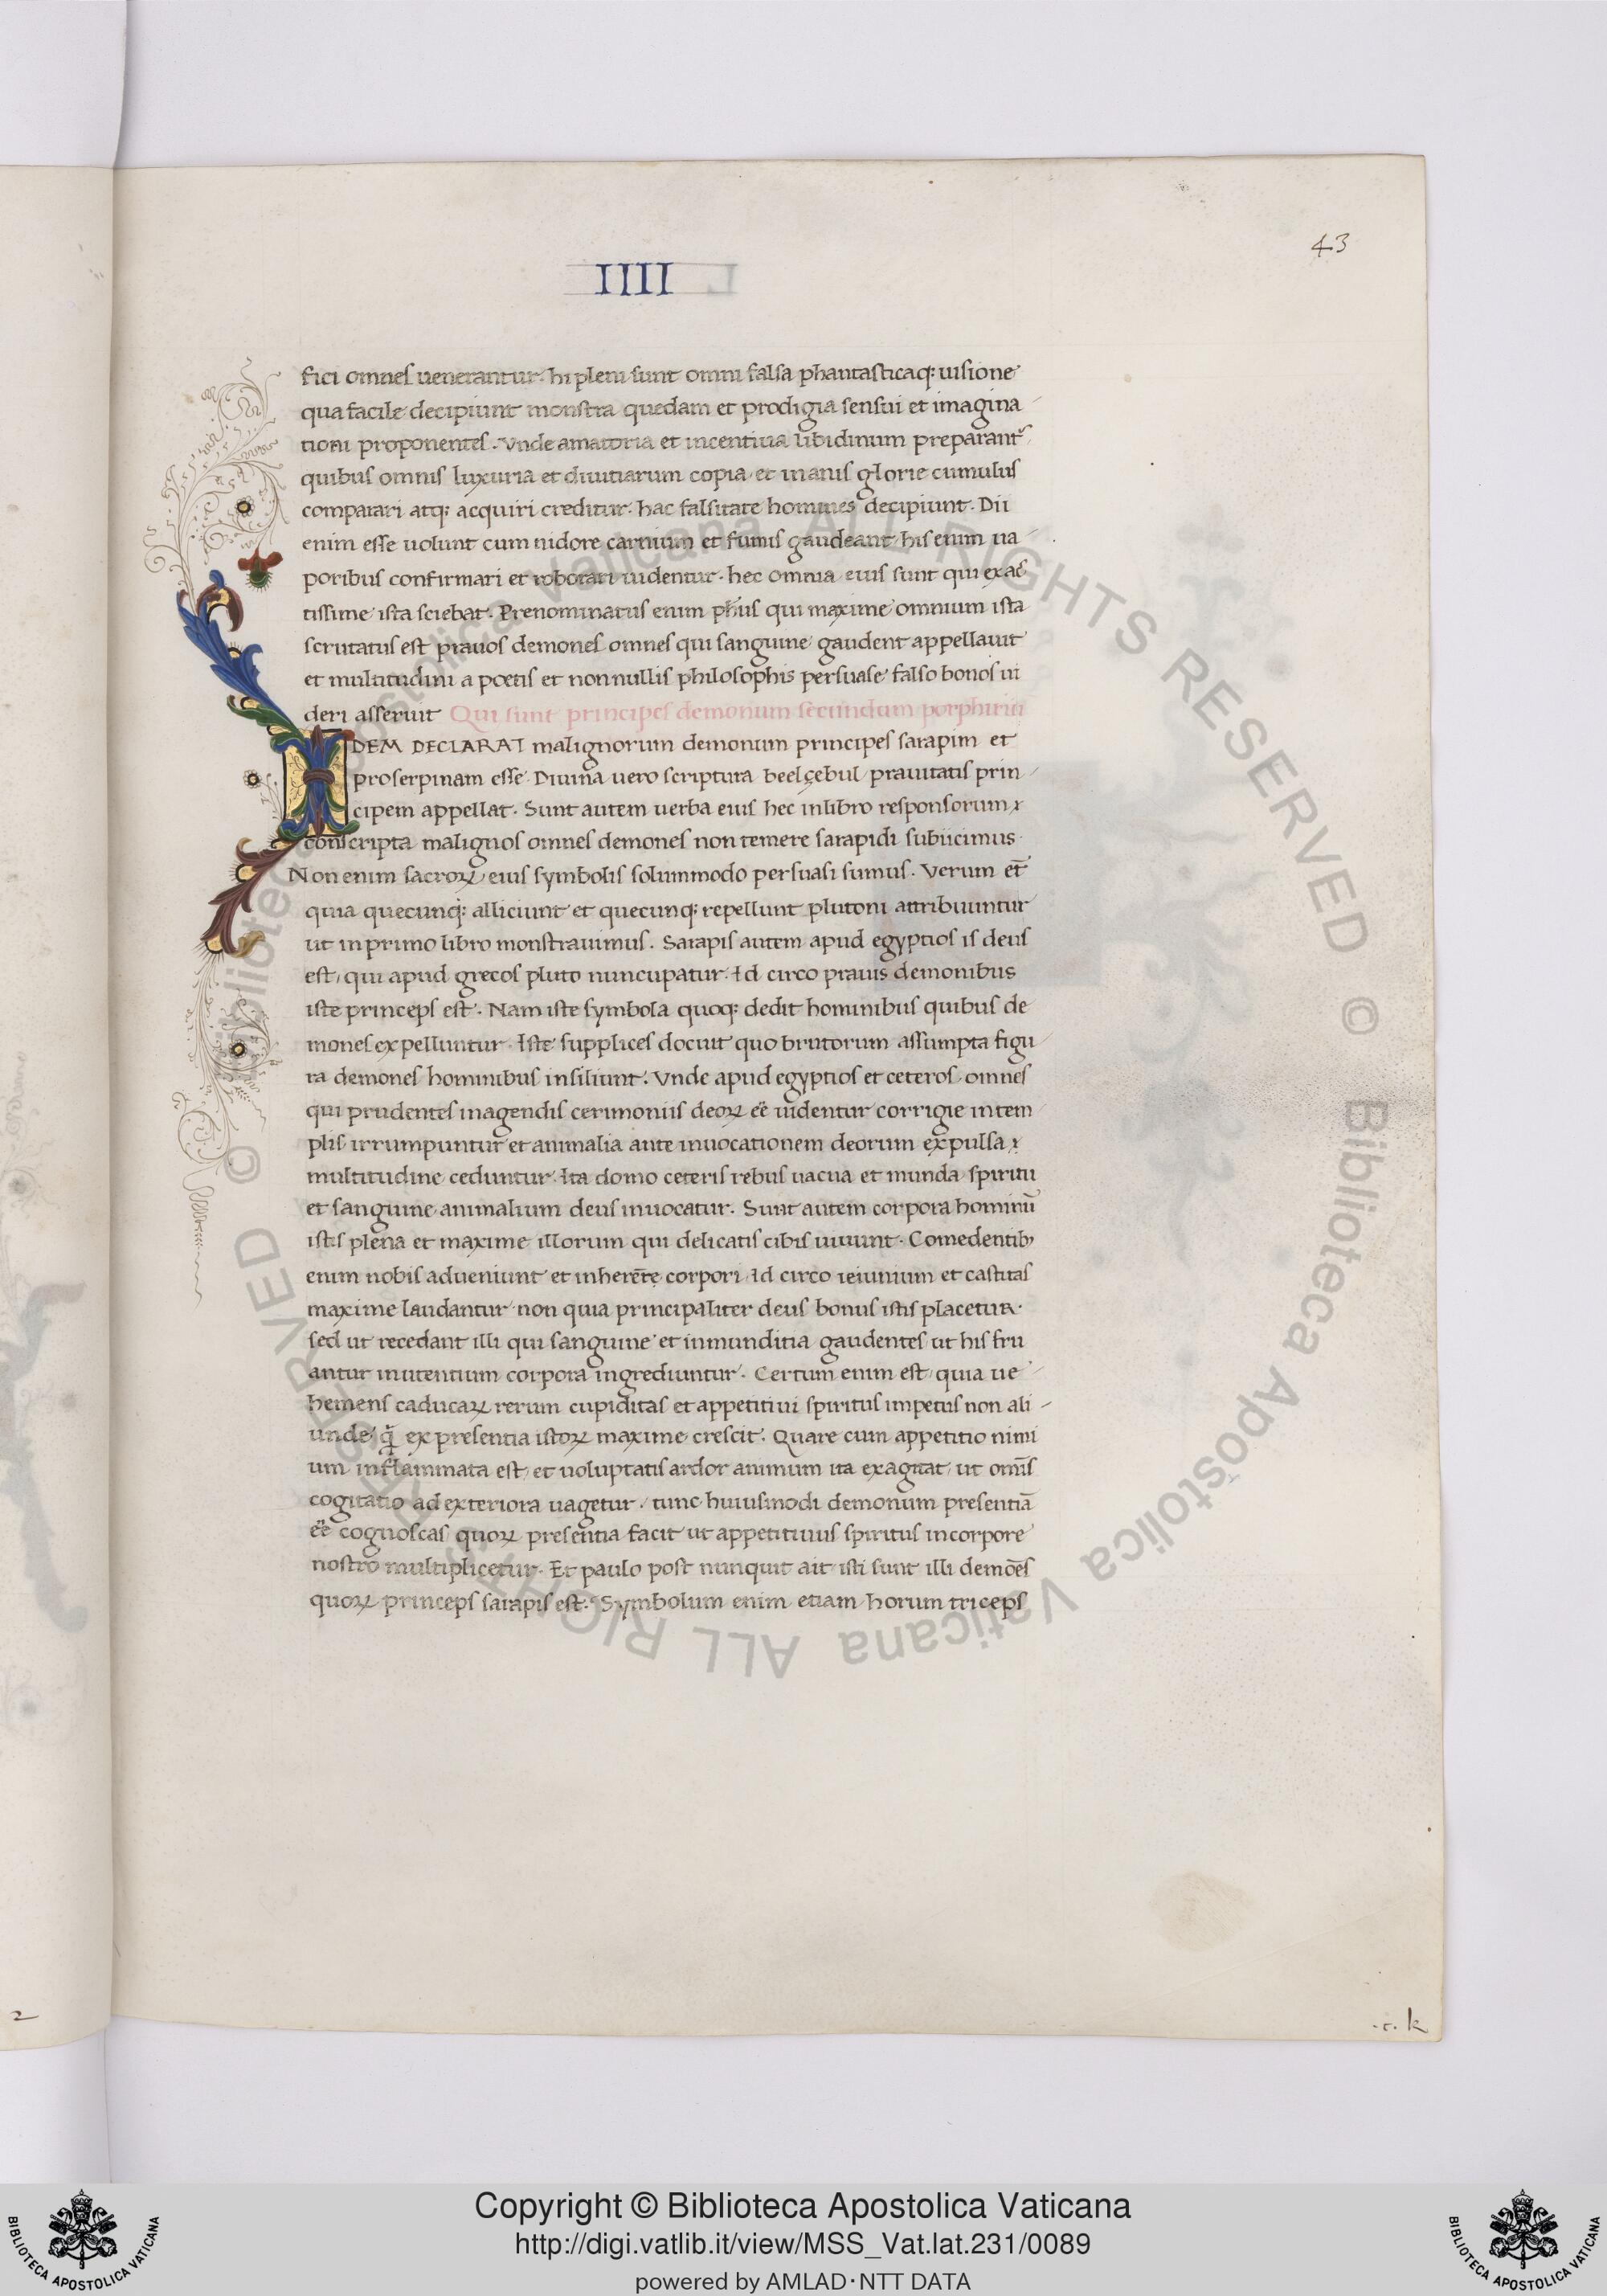 43
IIII
fici omnes uenerantur. hi pleni sunt omni falsa phantasticaq; uisione
qua facile decipiunt monstra quedam et prodigia sensui et imagina
tioni proponentes. Vnde amatoria et incentiua libidinum preparant᷑
quibus omnis luxuria et diuitiarum copia et inanis glorie cumulus
comparari atq; acquiri creditur. hac falsitate homines decipiunt. Dii
enim esse uolunt cum nidore carnium et fumis gaudeant. his enim ua
poribus confirmari et roborari uidentur. hec omnia eius sunt qui exac
tissime ista sciebat. Prenominatus enim ph̄us qui maxime omnium ista
scrutatus est prauos demones omnes qui sanguine gaudent appellauit
et multitudini a poetis et nonnullis philosophis persuase falso bonos ui
deri asseruit Qui sunt principes demonum secundum porphiriū
IDEM DECLARAT malignorum demonum principes sarapim et
proserpinam esse. Diuina uero scriptura beelçebul prauitatis prin
cipem appellat. Sunt autem uerba eius hec in libro responsorum
conscripta malignos omnes demones non temere sarapidi subiicimus.
Non enim sacroꝝ eius symbolis solummodo persuasi sumus. Verum et̄
quia quecunq; alliciunt et quecunq; repellunt plutoni attribuuntur
ut in primo libro monstrauimus. Sarapis autem apud egyptios is deus
est, qui apud grecos pluto nuncupatur. Id circo prauis demonibus
iste princeps est. Nam iste symbola quoq; dedit hominibus quibus de
mones expelluntur. Iste supplices docuit quo brutorum assumpta figu
ra demones hominibus insiliunt. Vnde apud egyptios et ceteros omnes
qui prudentes in agendis cerimoniis deoꝝ eē uidentur corrigie in tem
plis irrumpuntur et animalia ante inuocationem deorum expulsa
multitudine ceduntur. Ita domo ceteris rebus uacua et munda spiritu
et sanguine animalium deus inuocatur. Sunt autem corpora hominū
istis plena et maxime illorum qui delicatis cibis uiuunt. Comedentibꝫ
enim nobis adueniunt et inherēte corpori. Id circo ieiunium et castitas
maxime laudantur non quia principaliter deus bonus istis placetur.
sed ut recedant illi qui sanguine et inmunditia gaudentes ut his fru
antur in utentium corpora ingrediuntur. Certum enim est quia ue
hemens caducaꝝ rerum cupiditas et appetitiui spiritus impetus non ali
unde q̄ ex presentia istoꝝ maxime crescit. Quare cum appetitio nimi
um inflammata est, et uoluptatis ardor animum ita exagitat, ut omīs
cogitatio ad exteriora uagetur, tunc huiusmodi demonum presentiā
eē cognoscas quoꝝ presentia facit ut appetitiuus spiritus in corpore
nostro multiplicetur. Et paulo post nunquit ait isti sunt illi demōes
quoꝝ princeps sarapis est. Symbolum enim etiam horum triceps
2
.r. k
© Biblioteca Apostolica Vaticana ALL RIGHTS RESERVED © Biblioteca Apostolica Vaticana ALL RIGHTS RESERVED
Copyright © Biblioteca Apostolica Vaticana
http://digi.vatlib.it/view/MSS_Vat.lat.231/0089
powered by AMLAD·NTT DATA
BIBLIOTECA APOSTOLICA VATICANA
BIBLIOTECA APOSTOLICA VATICANA